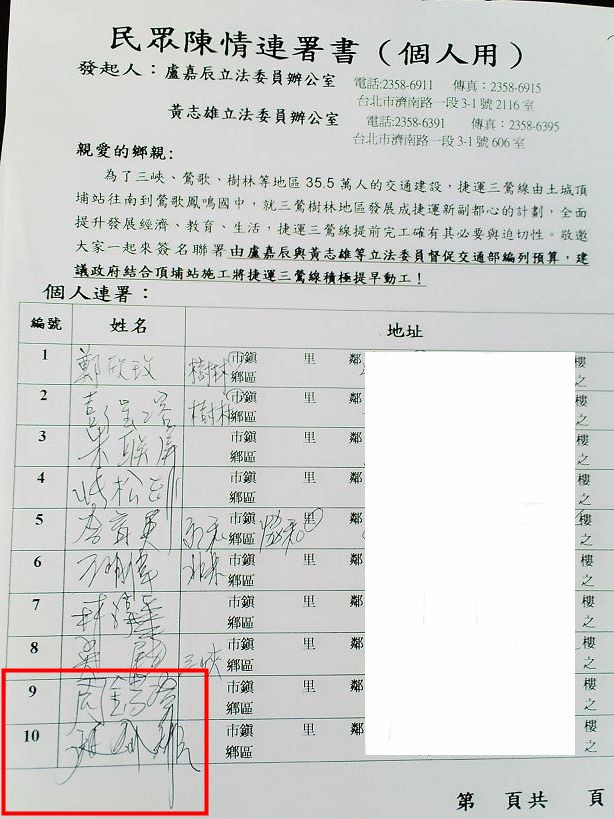 民眾陳情連署書（個人用）
發起人：盧嘉辰立法委員辦公室 電話:2358-6911 傳真：2358-6915
台北市濟南路一段 3-1 號 2116 室
黃志雄立法委員辦公室 電話:2358-6391 傳真：2358-6395
台北市濟南路一段 3-1 號 606 室
親愛的鄉親:
為了三峽、鶯歌、樹林等地區 35.5 萬人的交通建設，捷運三鶯線由土城頂
埔站往南到鶯歌鳳鳴國中，就三鶯樹林地區發展成捷運新副都心的計劃，全面
提升發展經濟、教育、生活，捷運三鶯線提前完工確有其必要與迫切性。敬邀
大家一起來簽名聯署由盧嘉辰與黃志雄等立法委員督促交通部編列預算，建
議政府結合頂埔站施工將捷運三鶯線積極提早動工！
個人連署：
編號 姓名 地址
1 鄭欣玫 樹林 市鎮 里 鄰 樓
鄉區 之
2 樹林 市鎮 里 鄰 樓
鄉區 之
3 市鎮 里 鄰 樓
鄉區 之
4 市鎮 里 鄰 樓
鄉區 之
5 市鎮 里 鄰 樓
鄉區 之
6 市鎮 里 鄰 樓
鄉區 之
7 市鎮 里 鄰 樓
鄉區 之
8 市鎮 里 鄰 樓
三峽 鄉區 之
9 市鎮 里 鄰 樓
鄉區 之
10 市鎮 里 鄰 樓
鄉區 之
第 頁共 頁